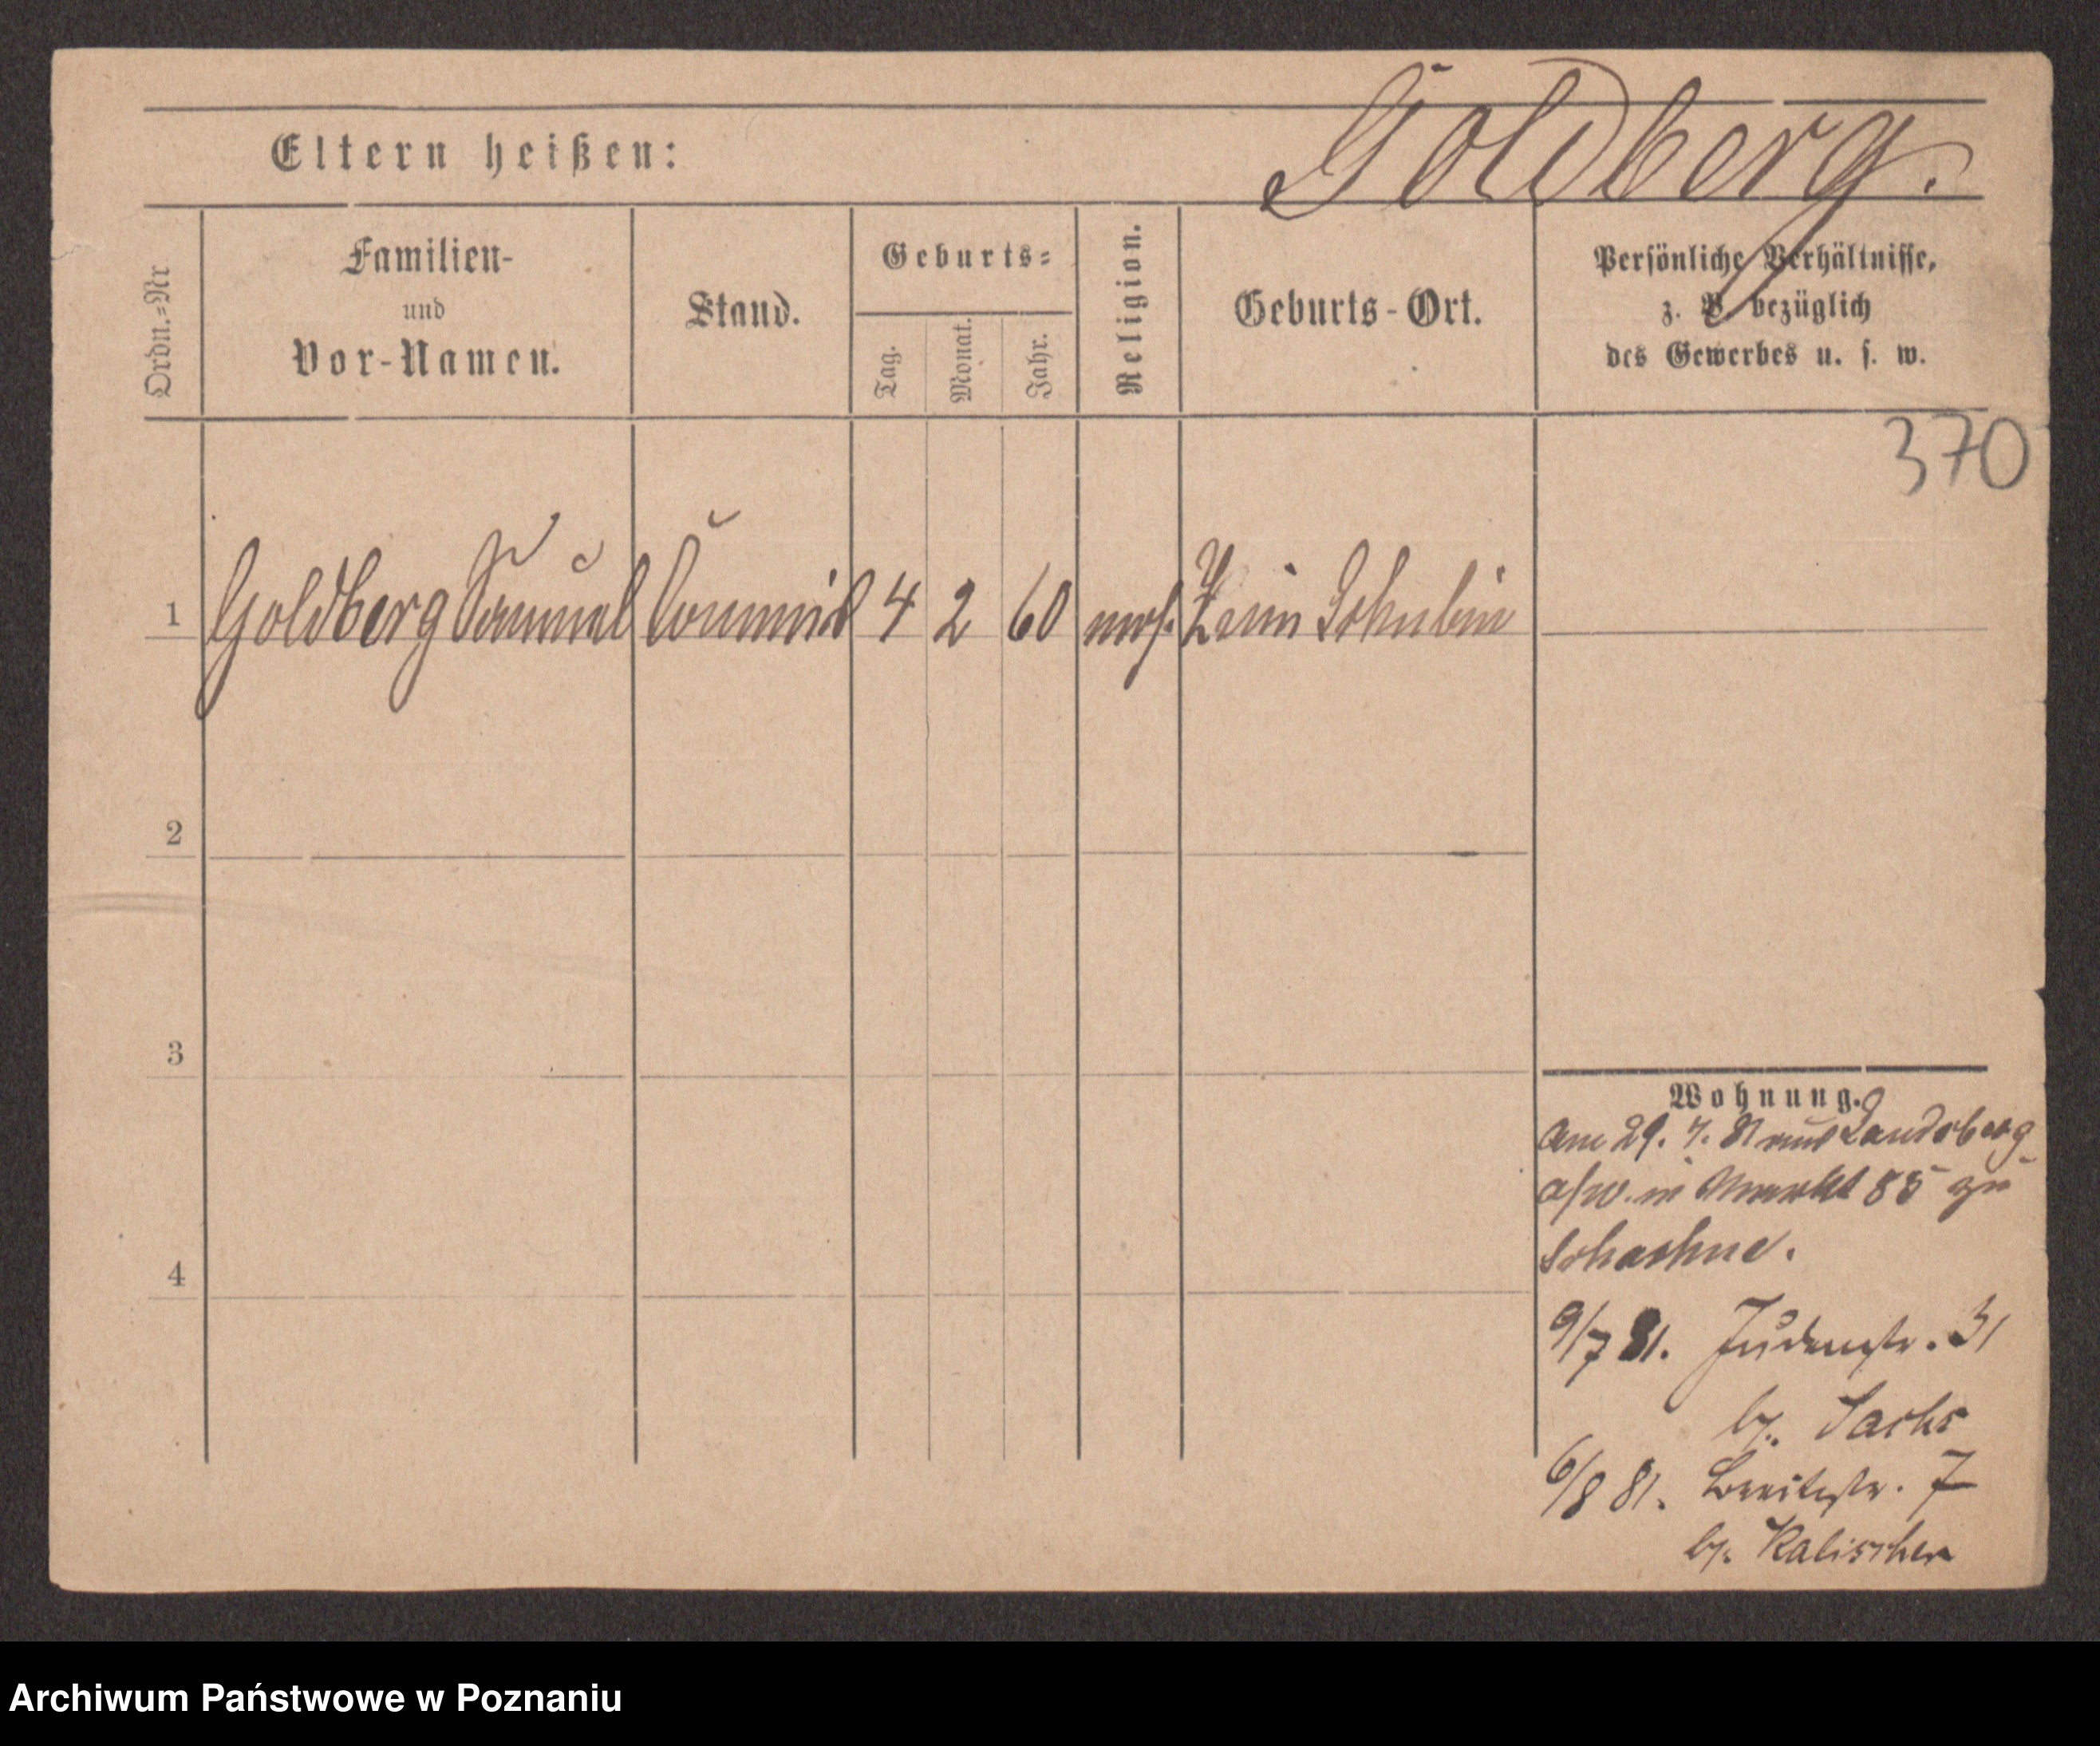 Goldberg.
Eltern heißen:
Ordn.=Nr
Familien-
und
Vor-Namen.
Stand.
Geburts=
Tag.
Monat.
Jahr.
Religion.
Geburts-Ort.
Persönliche Verhältnisse,
z. B. bezüglich
des Gewerbes u. s. w.
370
1 Goldberg Samuel Commis 4 2 60 mos. Znin Schubin
2
3
4
Wohnung.
Am 29. 7. 81 aus Landsberg
a/W. in Markt 85 zu
9/7 81. Judenstr. 31
by. Sachs
6/8 81. Breitestr. 7
by. Kalischer
Archiwum Państwowe w Poznaniu